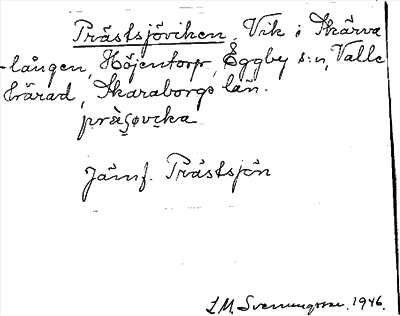 Prästsjöviken, Vik i Skärva
-lången, Höjentorp, Eggby s:n, Valle
härad, Skaraborgs län.
Jämf. Prästsjön
L.M. Svenungsson. 1946.